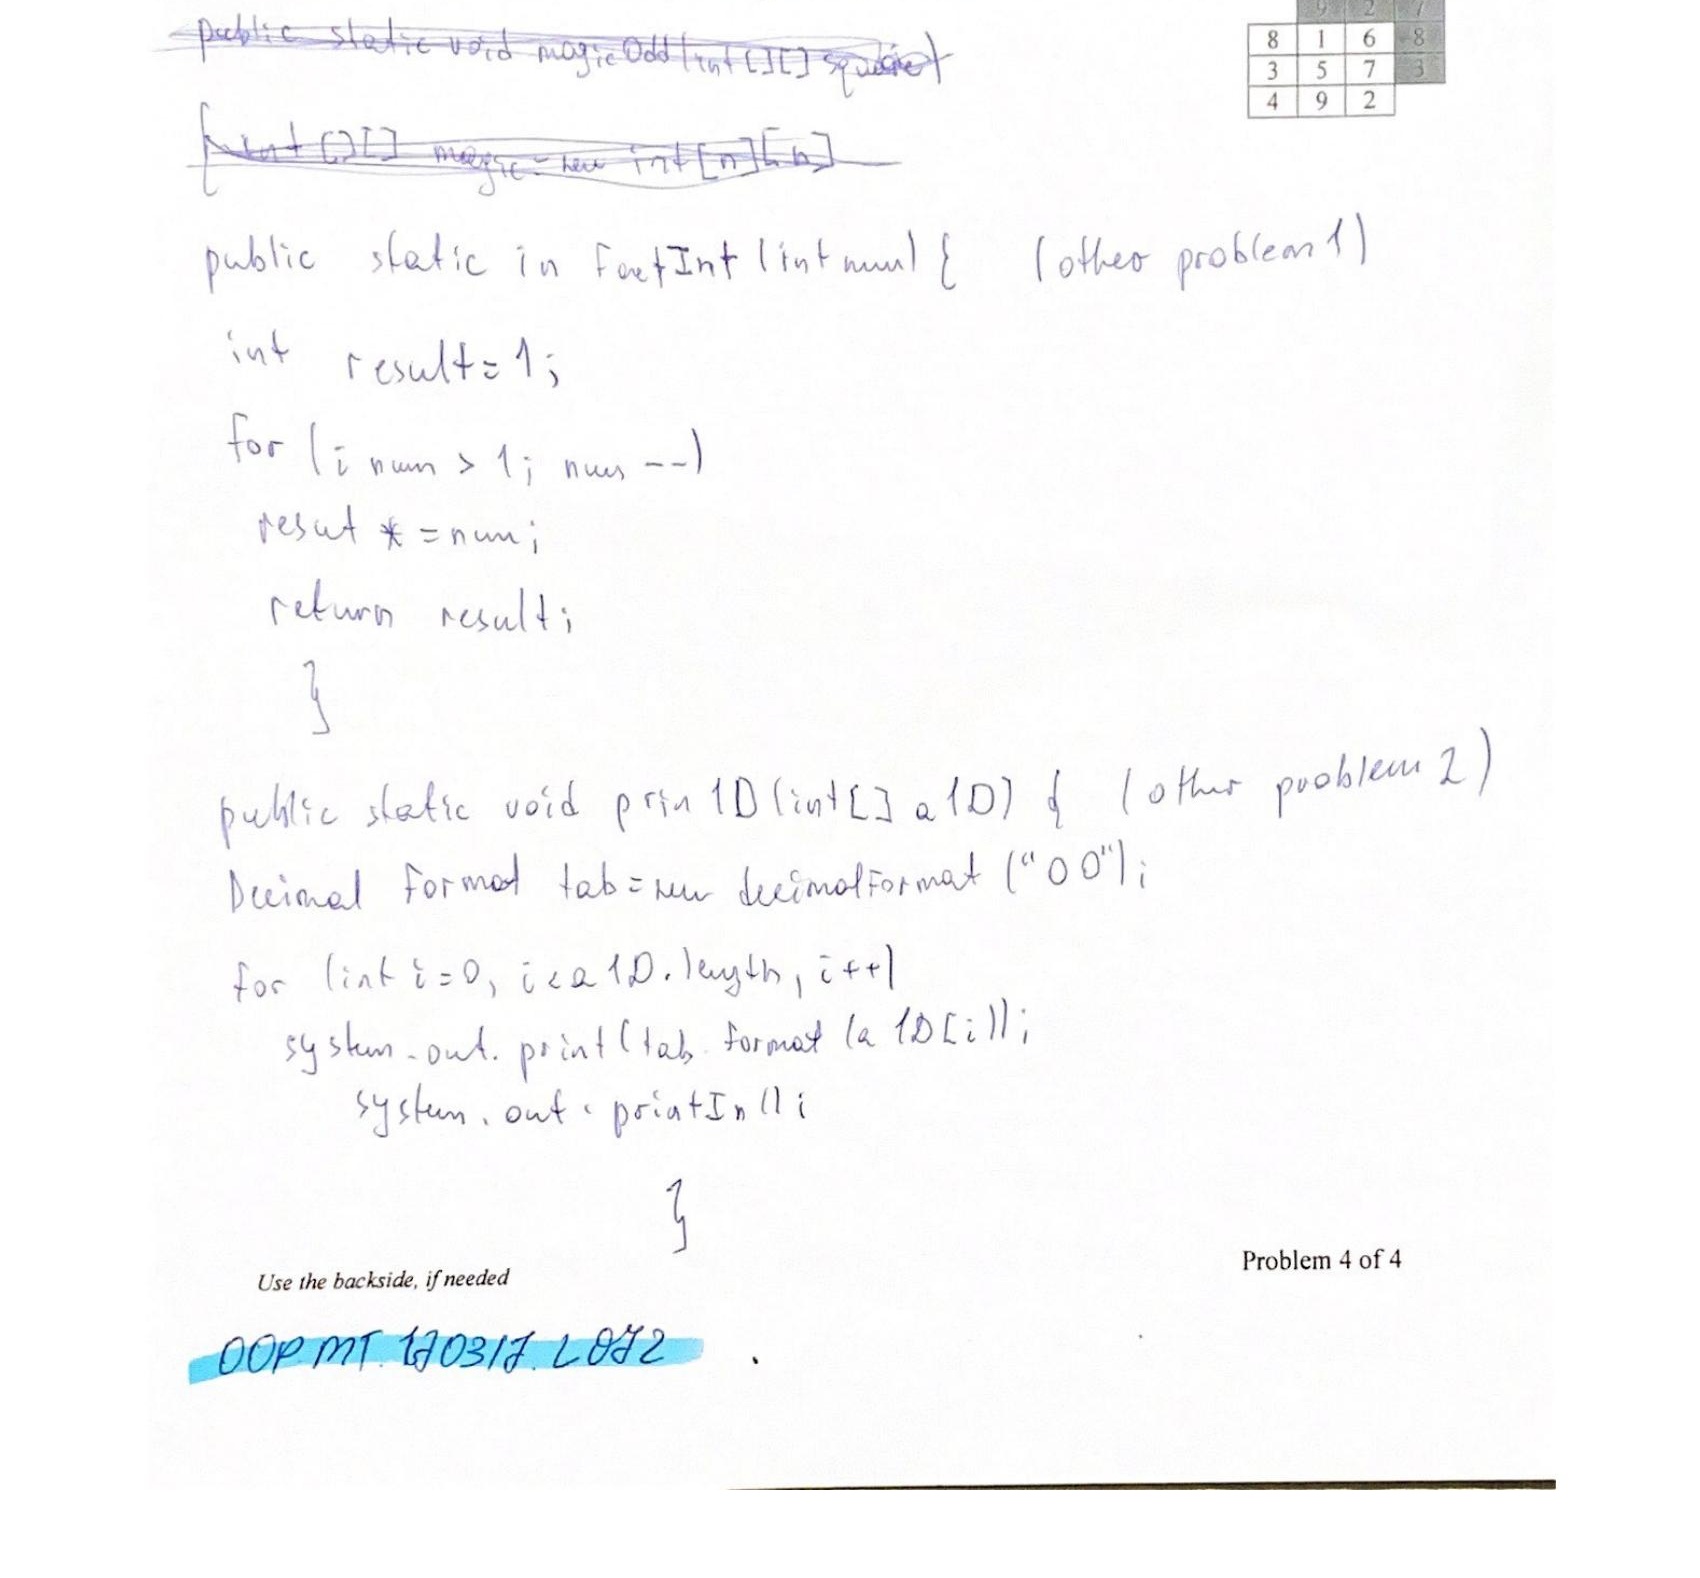 public static void magicOdd(int[][] square)
9 2 7
8 1 6 8
3 5 7 3
4 9 2
{ int[][] magic = new int[n][n]
public static in FactInt (int num) { (other problem 1)
int result = 1;
for (; num > 1; num --)
resut * = num;
return result;
}
public static void prin 1D (int[] a1D) { (other problem 2)
Decimal Format tab = new decimalFormat ("00");
for (int i=0, i<a1D.length, i++)
system.out.print(tab.format(a1D[i]));
system.out.printIn();
}
Use the backside, if needed
Problem 4 of 4
OOP MT. 170317. L072